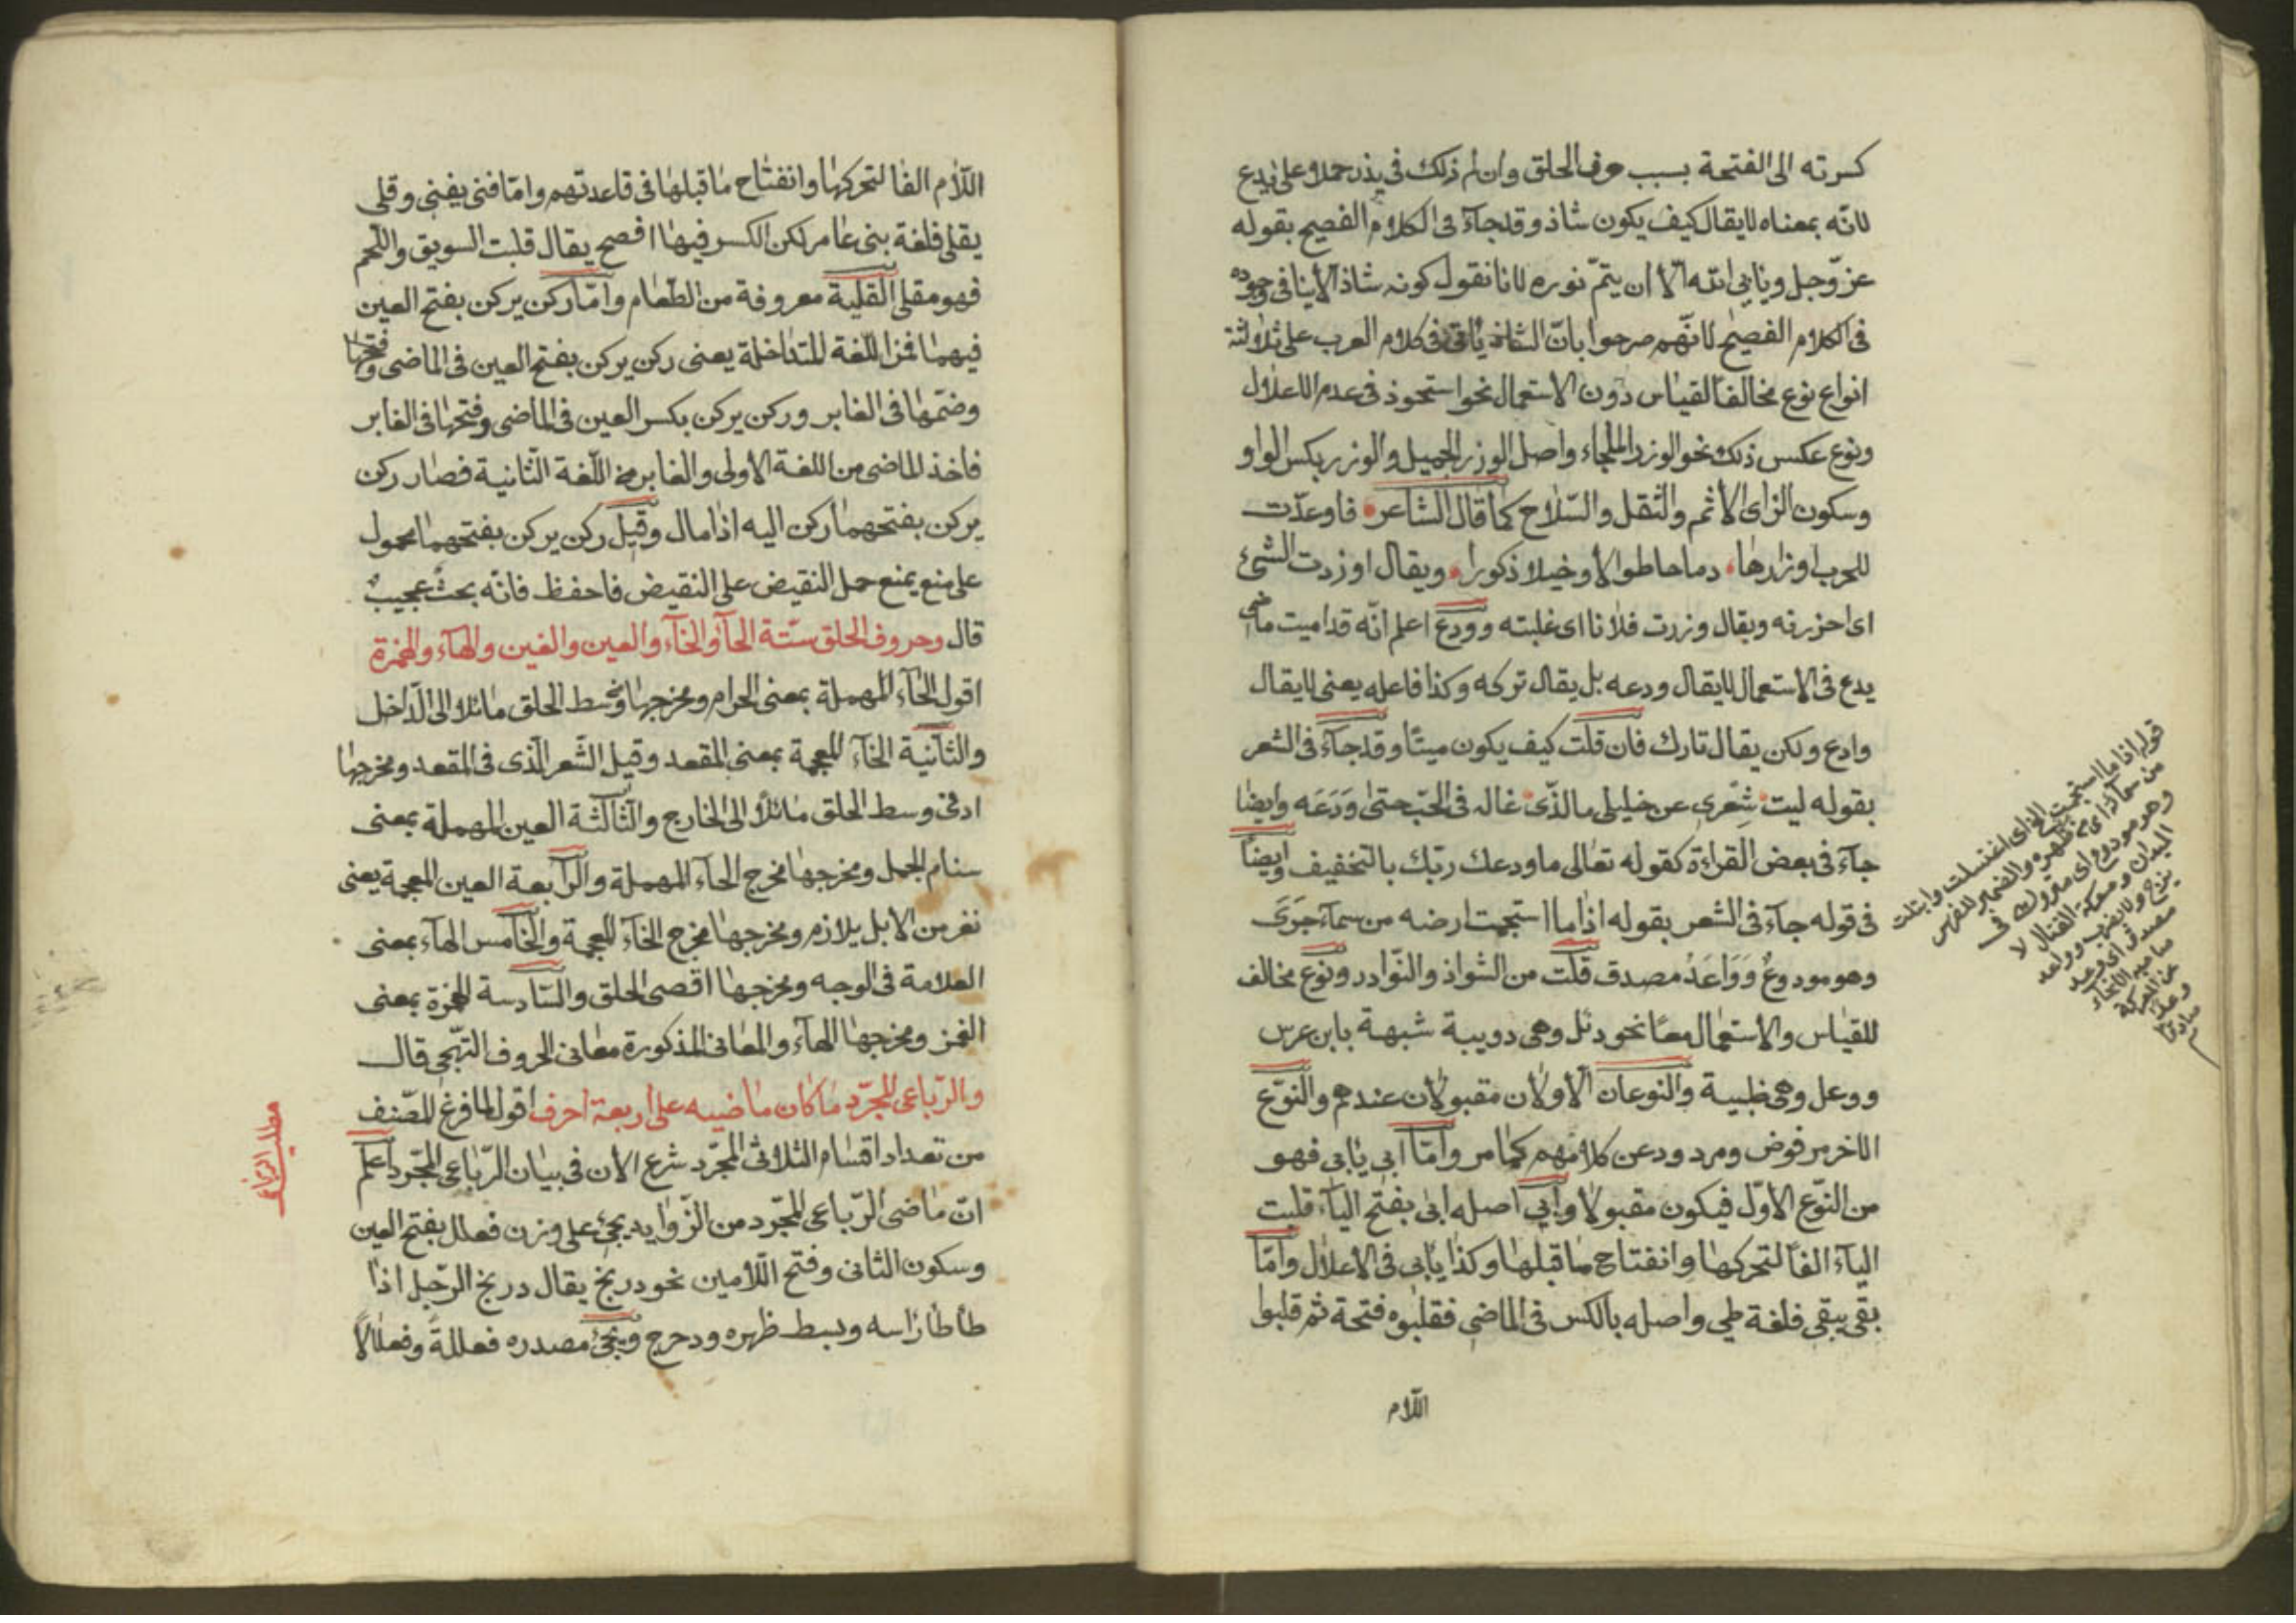 كسرته الى الفتحة بسبب حرف الحلق وان لم ذلك في يذر حملا على يدع
لانّه بمعناه لا يقال كيف يكون شاذ وقد جآء فى الكلام الفصيح بقوله
عزّ وجل ويابى الله الّا ان يتمّ نوره لانا نقول كونه شاذ الا ينافى وجوده
فى الكلام الفصيح لانّهم صرحوا بانّ الشاذ ياتى فى كلام العرب على ثلاثة
انواع نوع مخالفا لقياس دون الاستعمال نحو استحوذ فى عدم الاعلال
ونوع عكس ذلك نحو الوزر الملجاء واصل الوزر الجميل والوزر بكس الواو
وسكون الزاى الاثم والثقل والسّلاح كما قال الشاعر فاوعدّت
للحرب اوزارها دماحا طوالا وخيلا ذكورا ويقال اوزرت الشئ
اى احزرته ويقال وزرت فلانا اى غلبته وودع اعلم انّه قد اميت ماضى
يدع فى الاستعمال لا يقال ودعه بل يقال تركه وكذا فاعله يعنى لا يقال
وادع ولكن يقال تارك فان قلت كيف يكون ميتا وقد جآء فى الشعر
بقوله ليت شِعرى عن خليلى مالذّى غاله فى الحبّ حتى وَدَعَه وايضا
جآء فى بعض القراءة كقوله تعالى ما ودعك ربّك بالتخفيف وايضا
فى قوله جآء فى الشعر بقوله اذا ما استجمت ارضه من سمآء جَرَىَ
وهو مودوعٌ وَوَاعَدُ مصدق قلت من الشواذ والنّوادر ونوع مخالف
للقياس والاستعمال معًا نحو دئل وهى دويبة شبهة بابن عرس
ووعل وهى ظبية والنوعان الاولان مقبولان عندهم والنّوع
الاخر مرفوض ومردود عن كلامهم كما مر وامّا ابى يابى فهو
من النّوع الاوّل فيكون مقبولا وابى اصله ابى بفتح اليآء قلبت
اليآء الفا لتحركها وانفتاح ما قبلها وكذا يابى فى الاعلال وامّا
بقى يبقى فلغة طى واصله بالكس فى الماضى فقلبوه فتحة ثم قلبوا
اللّام
قوله اذا ما استجمت الذى اغتسلت وابتلت
من سمآء اى من ظهره والضمير للفرس
وهو مودوع اى متروك فى
الميدان ومعركة القتال لا
يزجر ولا يضرب وواعد
مصدق اى وعد
صاحبه النجآء
عن المعركة
وعدا
صادقا
اللّام الفا لتحركها وانفتاح ما قبلها فى قاعدتهم وامّا فنى يفنى وقلى
يقلى فلغة بنى عامر لكن الكسر فيها افصح يقال قلبت السويق واللّحم
فهو مقلى القلية معروفة من الطّعام وامّا ركن يركن بفتح العين
فيهما فمن اللّغة المتداخلة يعنى ركن يركن بفتح العين فى الماضى وفتحها
وضمّها فى الغابر وركن يركن بكس العين فى الماضى وفتحها فى الغابر
فاخذ الماضى من اللغة الاولى والغابر من اللّغة الثّانية فصار ركن
يركن بفتحهما ركن اليه اذا مال وقيل ركن يركن بفتحهما محمول
على منع يمنع حمل النقيض على النقيض فاحفظ فانّه بحثٌ عجيبٌ
قال وحروف الحلق ستّة الحآء والخآء والعين والغين والهآء والهمزة
اقول الحآء المهملة بمعنى الحرام ومخرجها وسط الحلق مائلا الى الدّاخل
والثّانية الخآء المعجمة بمعنى المقعد وقيل الشّعر الّذى فى المقعد ومخرجها
ادنى وسط الحلق مائلًا الى الخارج والثّالثة العين المهملة بمعنى
سنام الجمل ومخرجها مخرج الحآء المهملة والرّابعة العين المعجمة يعنى
نفر من الابل يلازم ومخرجها مخرج الخآء المعجمة والخامس الهآء بمعنى
العلامة فى الوجه ومخرجها اقصى الحلق والسّادسة الهمزة بمعنى
الغمز ومخرجها الهآء والمعانى المذكورة معانى الحروف التّهجى قال
والرّباعى المجرّد ما كان ماضيه على اربعة احرف اقول لما فرغ المصّنف
من تعداد اقسام الثلاثى المجرّد شرع الان فى بيان الرّباعى المجّرد اعلم
انّ ماضى الرّباعى المجّرد من الزّوايد يجئ على وزن فعلل بفتح العين
وسكون الثانى وفتح اللّامين نحو دربخ يقال دربخ الرّجل اذا
طأطأ راسه وبسط ظهره ودحرج ويجئ مصدره فعللةً وفعلالًا
مطلب الرباعى